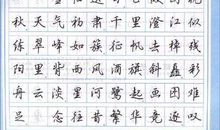 秋天气初肃千里澄江似
练翠峰如簇征帆去棹残
阳里背西风酒旗斜矗彩
舟云淡星河鹭起画图难
足 念往昔繁华竞逐叹